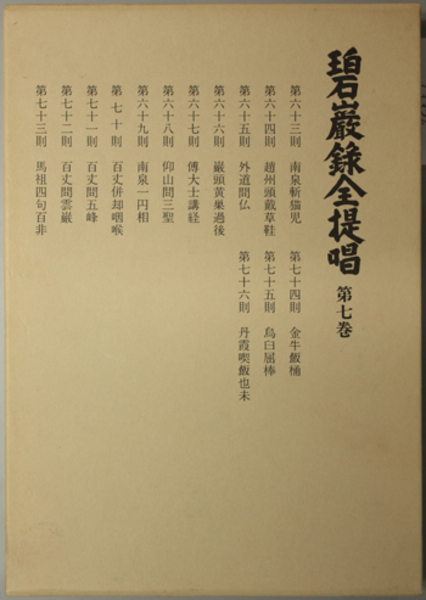 碧巖錄全提唱 第七巻
第六十三則 南泉斬猫児
第六十四則 趙州頭戴草鞋
第六十五則 外道問仏
第六十六則 巌頭黄巣過後
第六十七則 傅大士講経
第六十八則 仰山問三聖
第六十九則 南泉一円相
第七十則 百丈併却咽喉
第七十一則 百丈問五峰
第七十二則 百丈問雲巌
第七十三則 馬祖四句百非
第七十四則 金牛飯桶
第七十五則 烏臼屈棒
第七十六則 丹霞喫飯也未